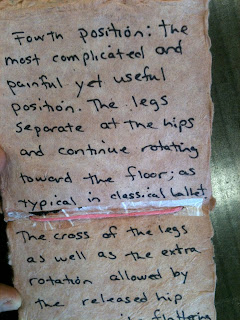 Fourth position: the
most complicated and
painful yet useful
position. The legs
separate at the hips
and continue rotating
toward the floor; as
typical in classical ballet
The cross of the legs
as well as the extra
rotation allowed by
the released hip
flattering